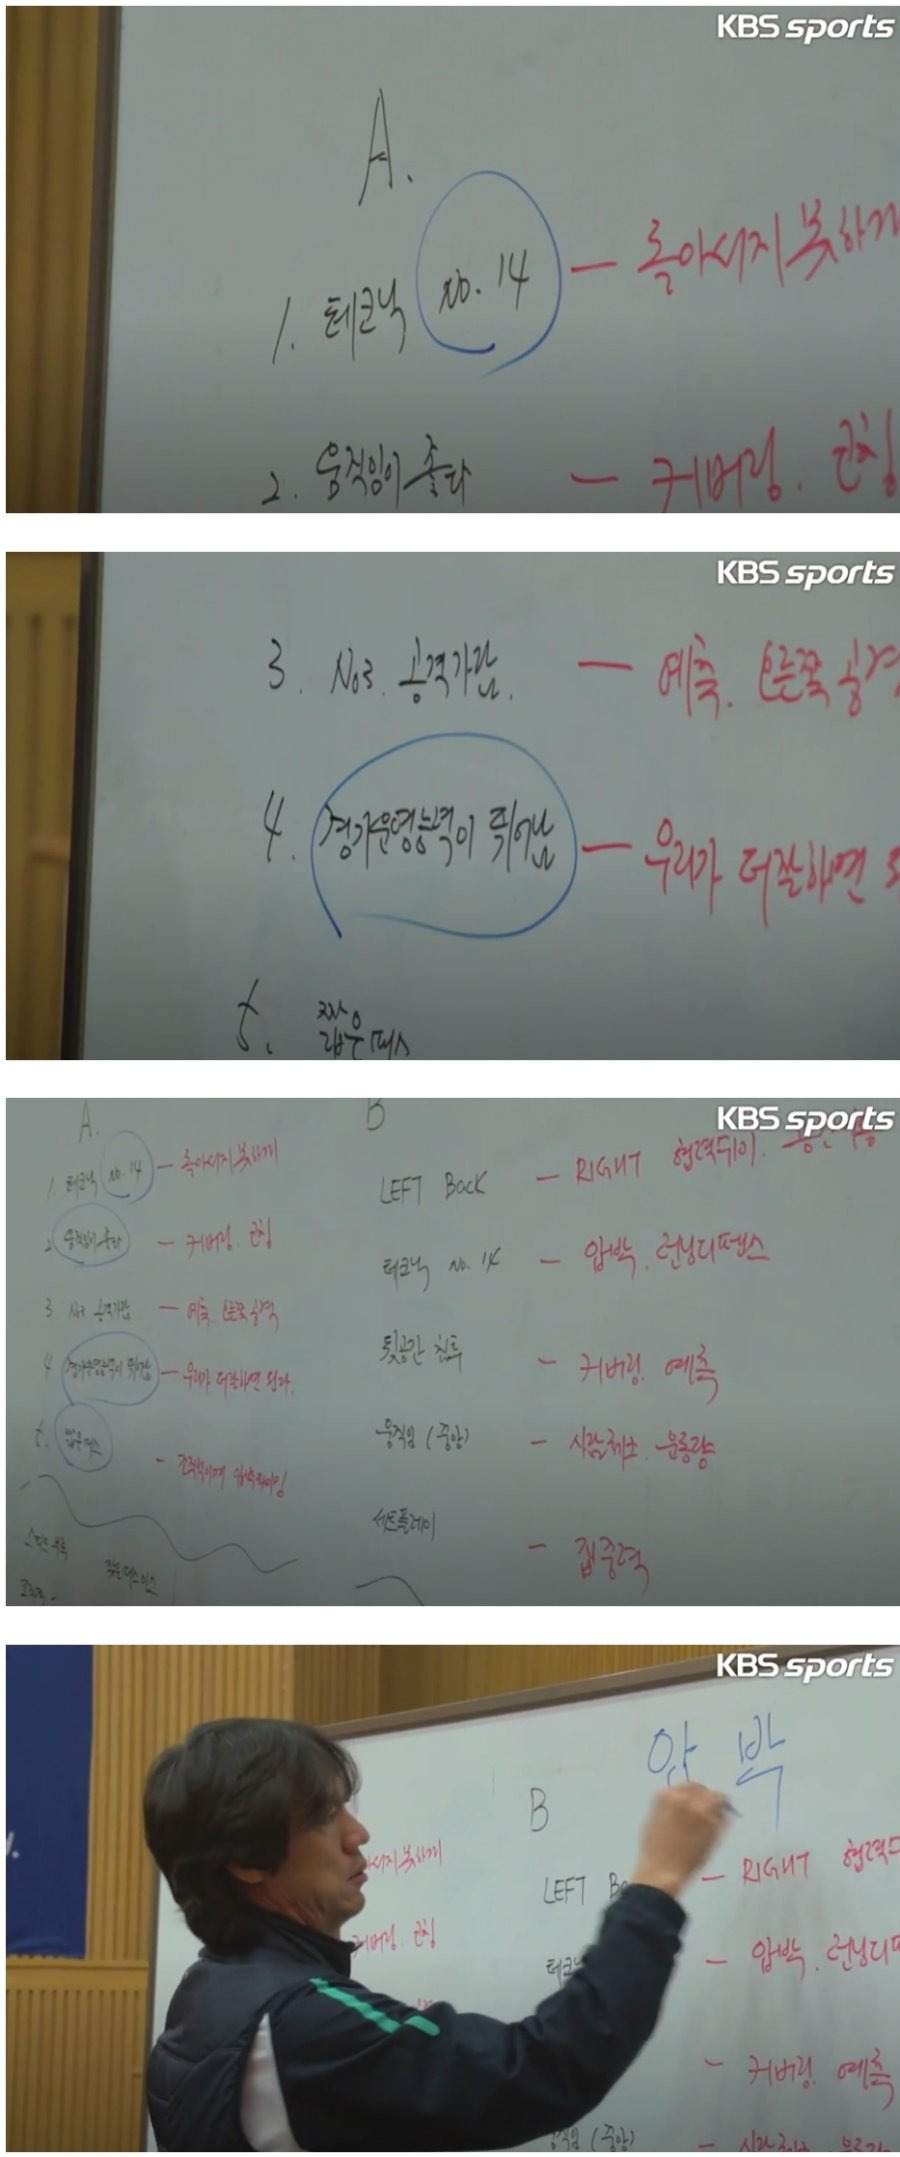 KBS sports
A.
1. 테크닉 no. 14 — 돌아서지 못하게
2. 움직임이 좋다 — 커버링. 근칭
KBS sports
3. No3. 공격가담. — 예측. 오른쪽 공격
4. 경기운영능력이 뛰어남 — 우리가 더 잘하면
5. 짧은패스
KBS sports
A.
1. 테크닉 no. 14 — 돌아서지 못하게
2 움직임이 좋다 — 커버링.
3 No3 공격가담 — 예측. 오른쪽 공격
4 경기운영능력이 뛰어남 — 우리가 더 잘하면 된다.
5. 짧은패스 -
B
LEFT Back — RIGHT 협력
테크닉 no. 14 — 압박. 런닝디펜스
뒷공간 침투 — 커버링. 예측
움직임 (중앙) — 운동량
세트플레이 — 집중력
KBS sports
압박
B
서지 못하게
커버링.
LEFT Ba — RIGHT 협력
테크 — 압박. 런닝디
— 커버링. 예측
직임 (중앙) —